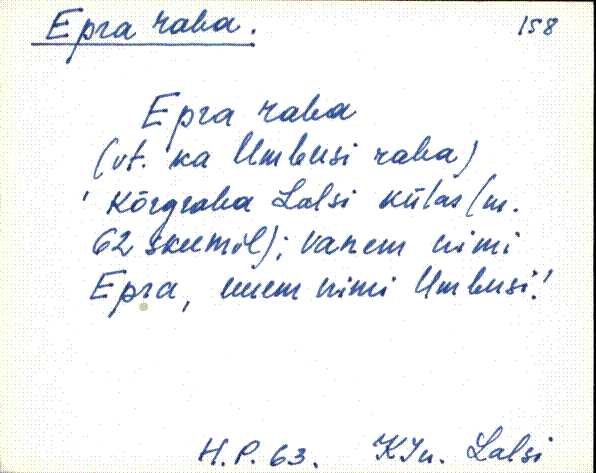 Epra raba.
158
Epra raba
(vt. ka Umbusi raba)
'Kõrgraba Lalsi külas (m.
62 skeemil); vanem nimi
Epra, uuem nimi Umbusi.'
H.P. 63. KJn. Lalsi